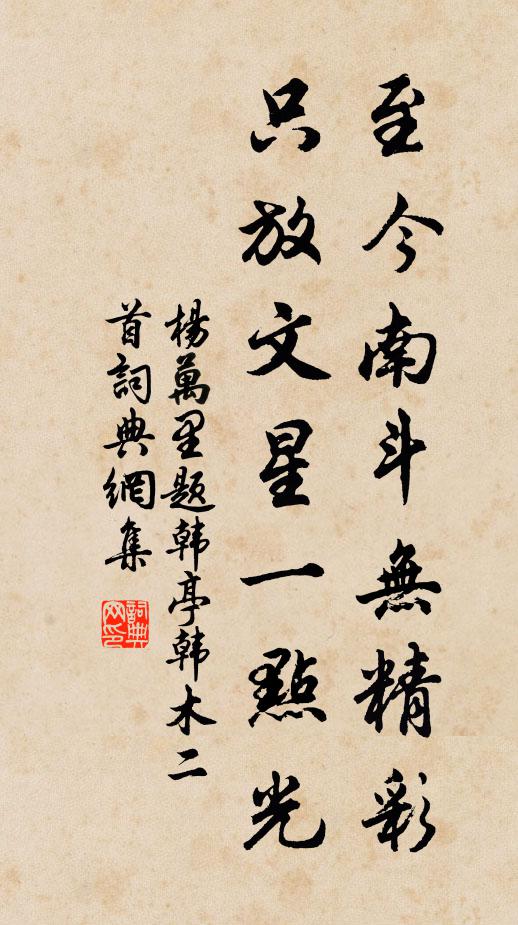 至今南斗無精彩
只放文星一點光
楊萬里題韩亭韩木二
首詞典網集
詞典网印